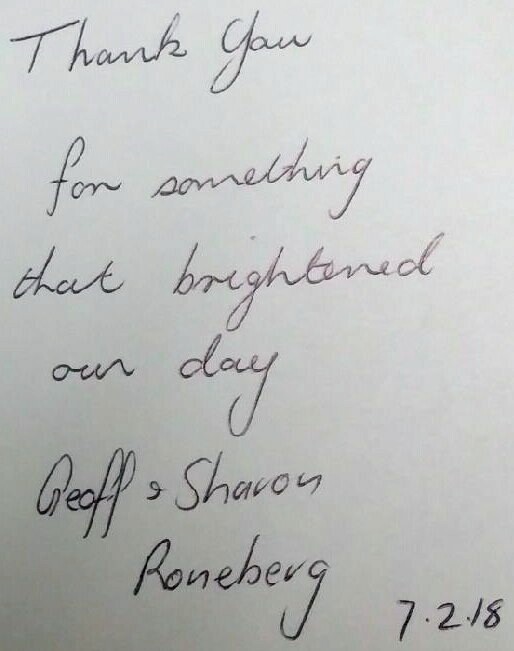 Thank You
for something
that brightened
our day
Geoff & Sharon
Roneberg
7.2.18